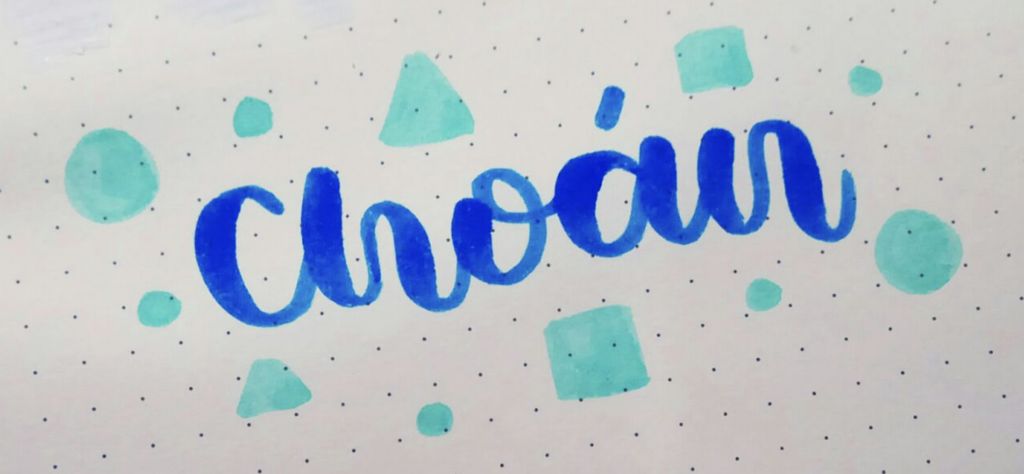 choán